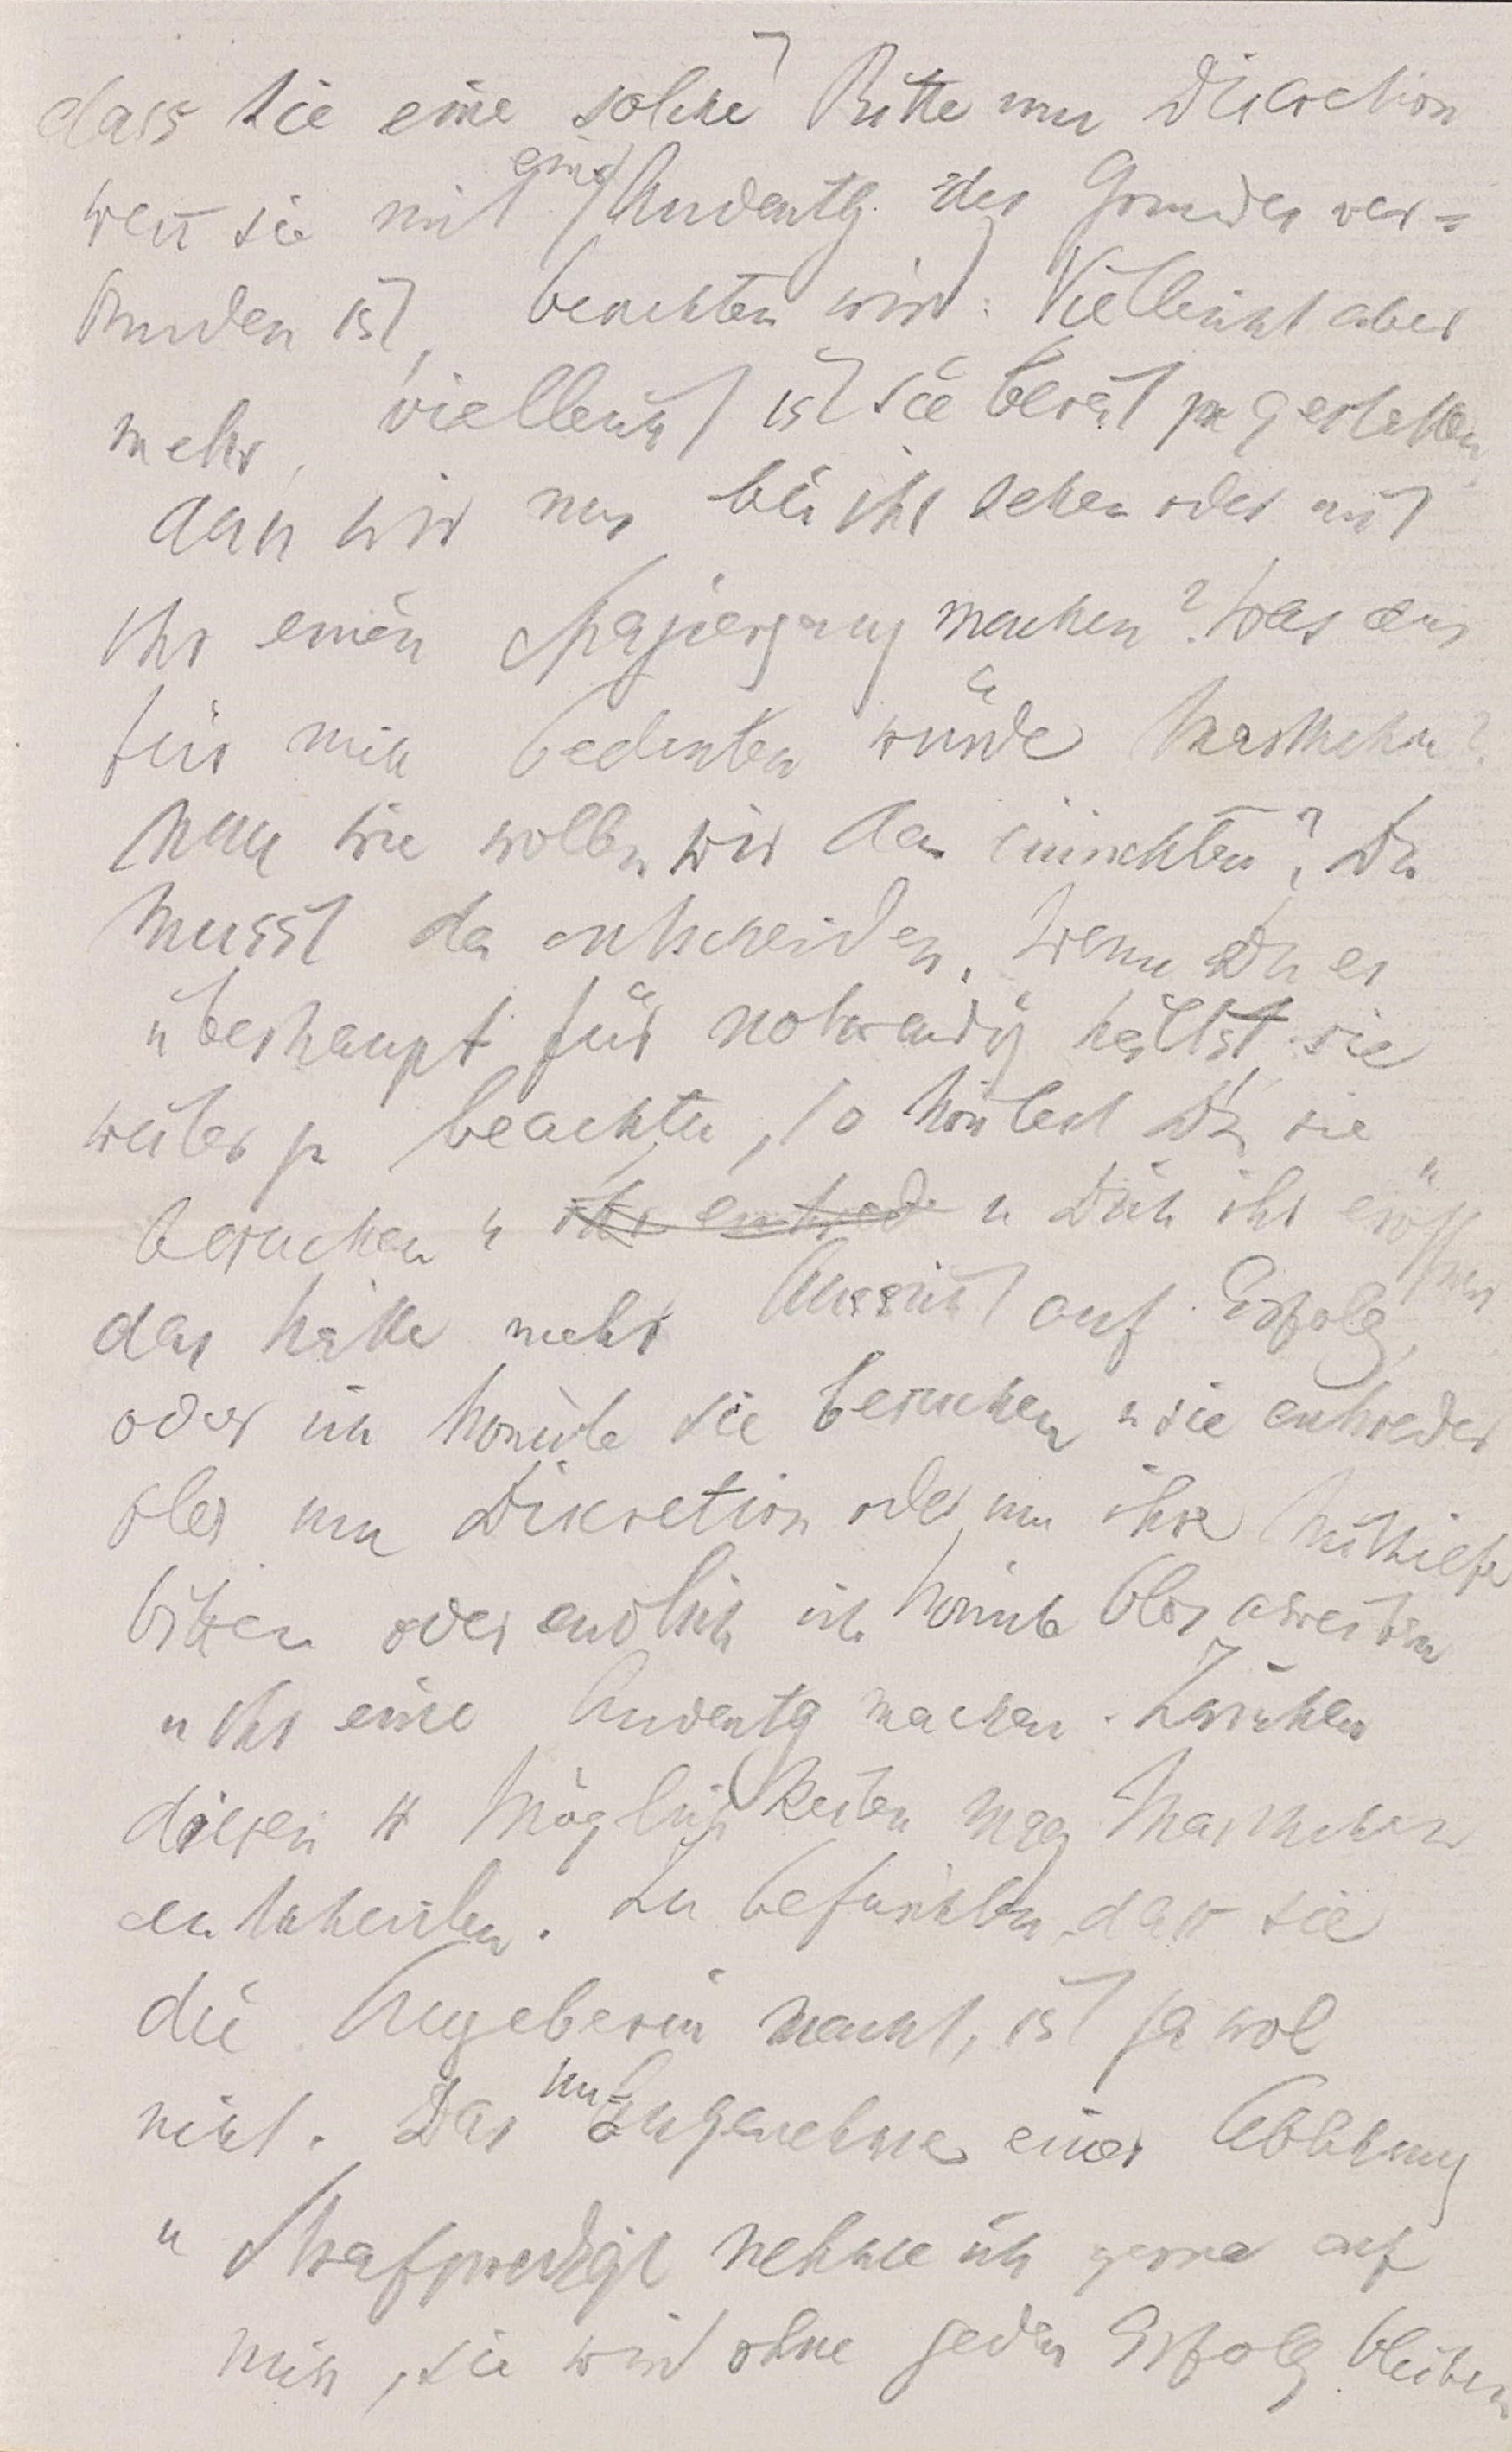 dass sie eine solche Bitte um Discretion
wen̄ sie mit einer Andeutg des Grundes ver=
bunden ist, beachten wird. Vielleicht aber
mehr, vielleicht ist sie bereit zu gestatten
dass wir uns bei ihr sehen oder mit
ihr einen Spaziergang machen? Was das
für mich bedeuten würde Marthchen?
Nun wie wollen wir das einrichten? Du
musst da entscheiden. Wenn Du es
überhaupt für notwendig hältst sie
weiter zu beachten, so könntest Du sie
besuchen u ihr entwed u Dich ihr eröffnen
das hätte mehr Aussicht auf Erfolg,
oder ich könnte sie besuchen u sie entweder
blos um Diskretion oder um ihre Mithilfe
bitten oder endlich ich könnte blos
u ihr eine Andeutg machen. Zwischen
diesen Möglichkeiten mag Marthchen
entscheiden. Zu befürchten, dass sie
die Angeberin macht, ist ja wol
nicht. Das Unangenehme einer Ablehnung
u Strafpredigt nehme ich gerne auf
mich, sie wird ohne jeden Erfolg bleiben